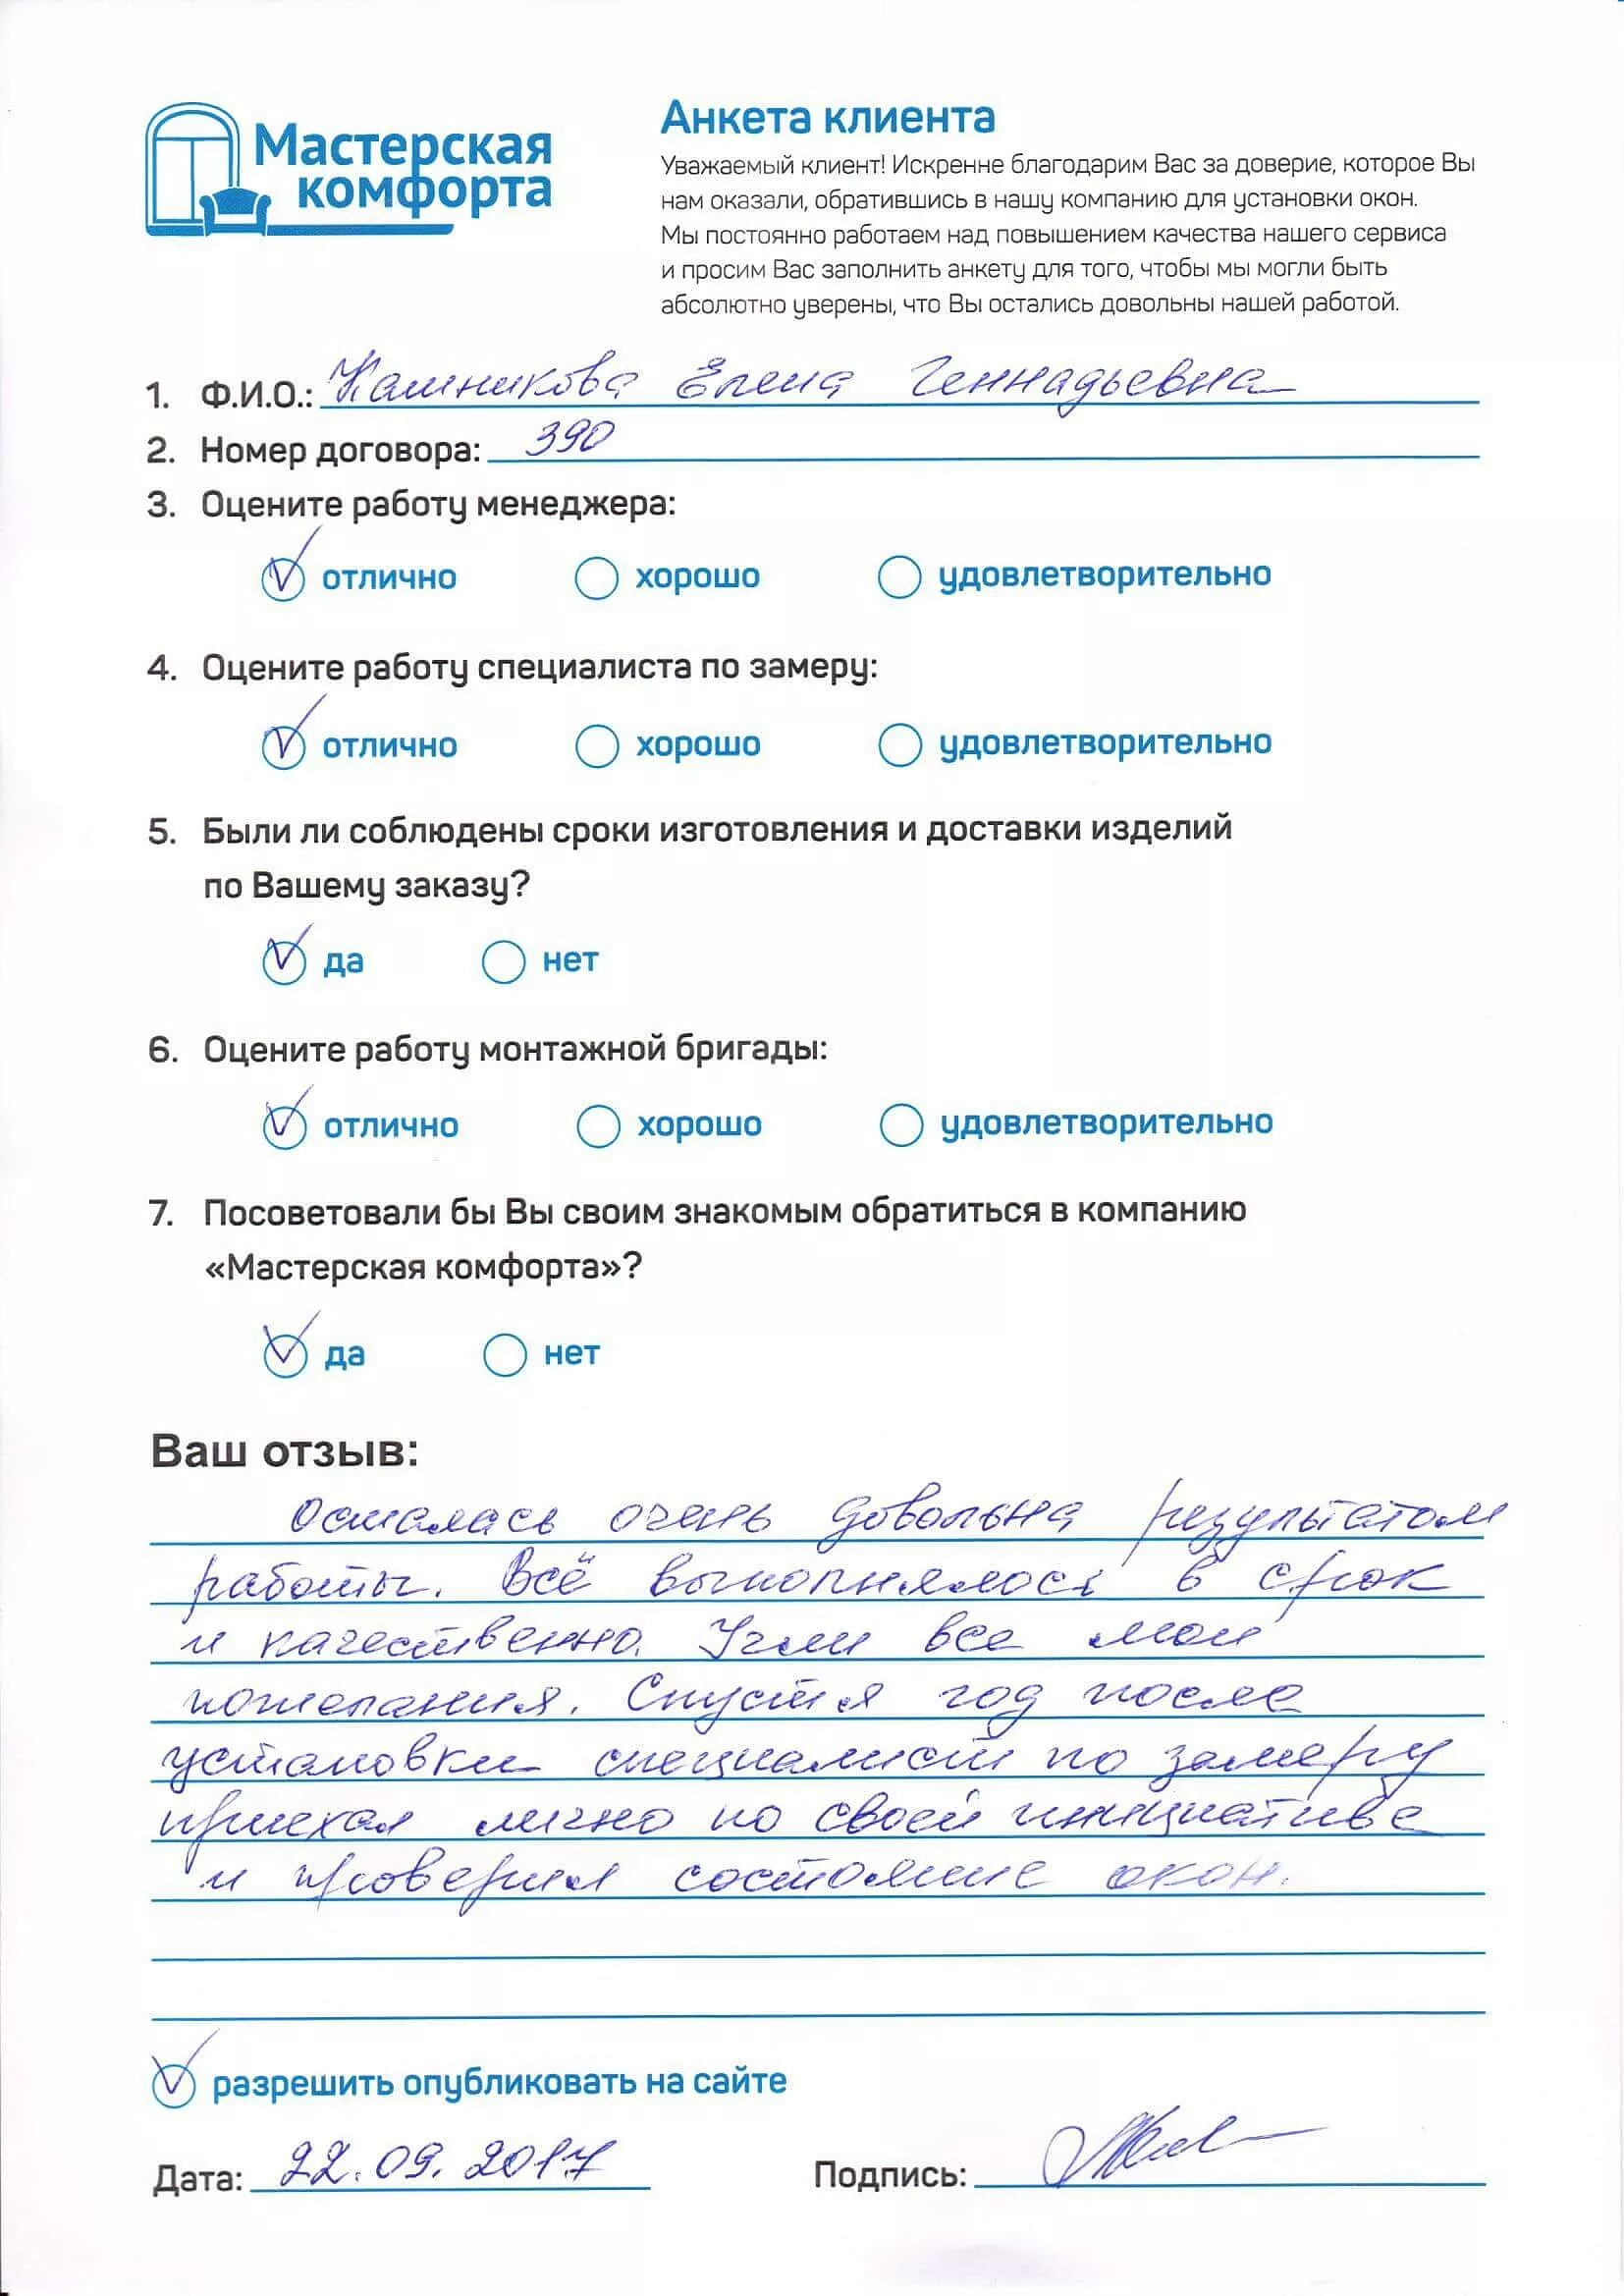 Мастерская
комфорта
Анкета клиента
Уважаемый клиент! Искренне благодарим Вас за доверие, которое Вы
нам оказали, обратившись в нашу компанию для установки окон.
Мы постоянно работаем над повышением качества нашего сервиса
и просим Вас заполнить анкету для того, чтобы мы могли быть
абсолютно уверены, что Вы остались довольны нашей работой.
1. Ф.И.О.: Калникова Елена Геннадьевна
2. Номер договора: 390
3. Оцените работу менеджера:
отлично хорошо удовлетворительно
4. Оцените работу специалиста по замеру:
отлично хорошо удовлетворительно
5. Были ли соблюдены сроки изготовления и доставки изделий
по Вашему заказу?
да нет
6. Оцените работу монтажной бригады:
отлично хорошо удовлетворительно
7. Посоветовали бы Вы своим знакомым обратиться в компанию
«Мастерская комфорта»?
да нет
Ваш отзыв:
Осталась очень довольна результатом
работы. Всё выполнялось в срок
и качественно. Учли все мои
пожелания. Спустя год после
установки специалист по замеру
приехал лично по своей инициативе
и проверил состояние окон.
разрешить опубликовать на сайте
Дата: 22.09.2017 Подпись: